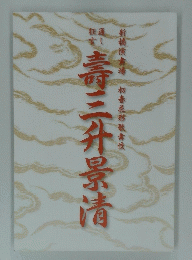 新橋演舞場 初春花形歌舞伎
通し狂言
壽三升景清